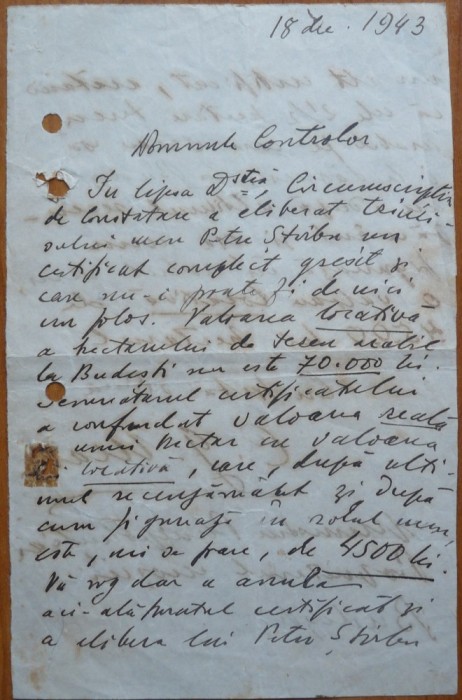 18 Dec. 1943
Domnule Controlor
În lipsa Dstră, Circumscripția
de Constatare a eliberat trimi-
sului meu Petre Știrbu un
certificat complect greșit și
care nu-i poate fi de nici
un folos. Valoarea locativă
a hectarului de teren arabil
la Budești nu este 70.000 lei.
Semnatarul certificatului
a confundat valoarea reală
a unui hectar cu valoarea
locativă, care, după ulti-
mul recensământ și după
cum figurează în rolul meu,
este, mi se pare, de 4500 lei.
Vă rog dar a anula
aci-alăturatul certificat și
a elibera lui Petre Știrbu